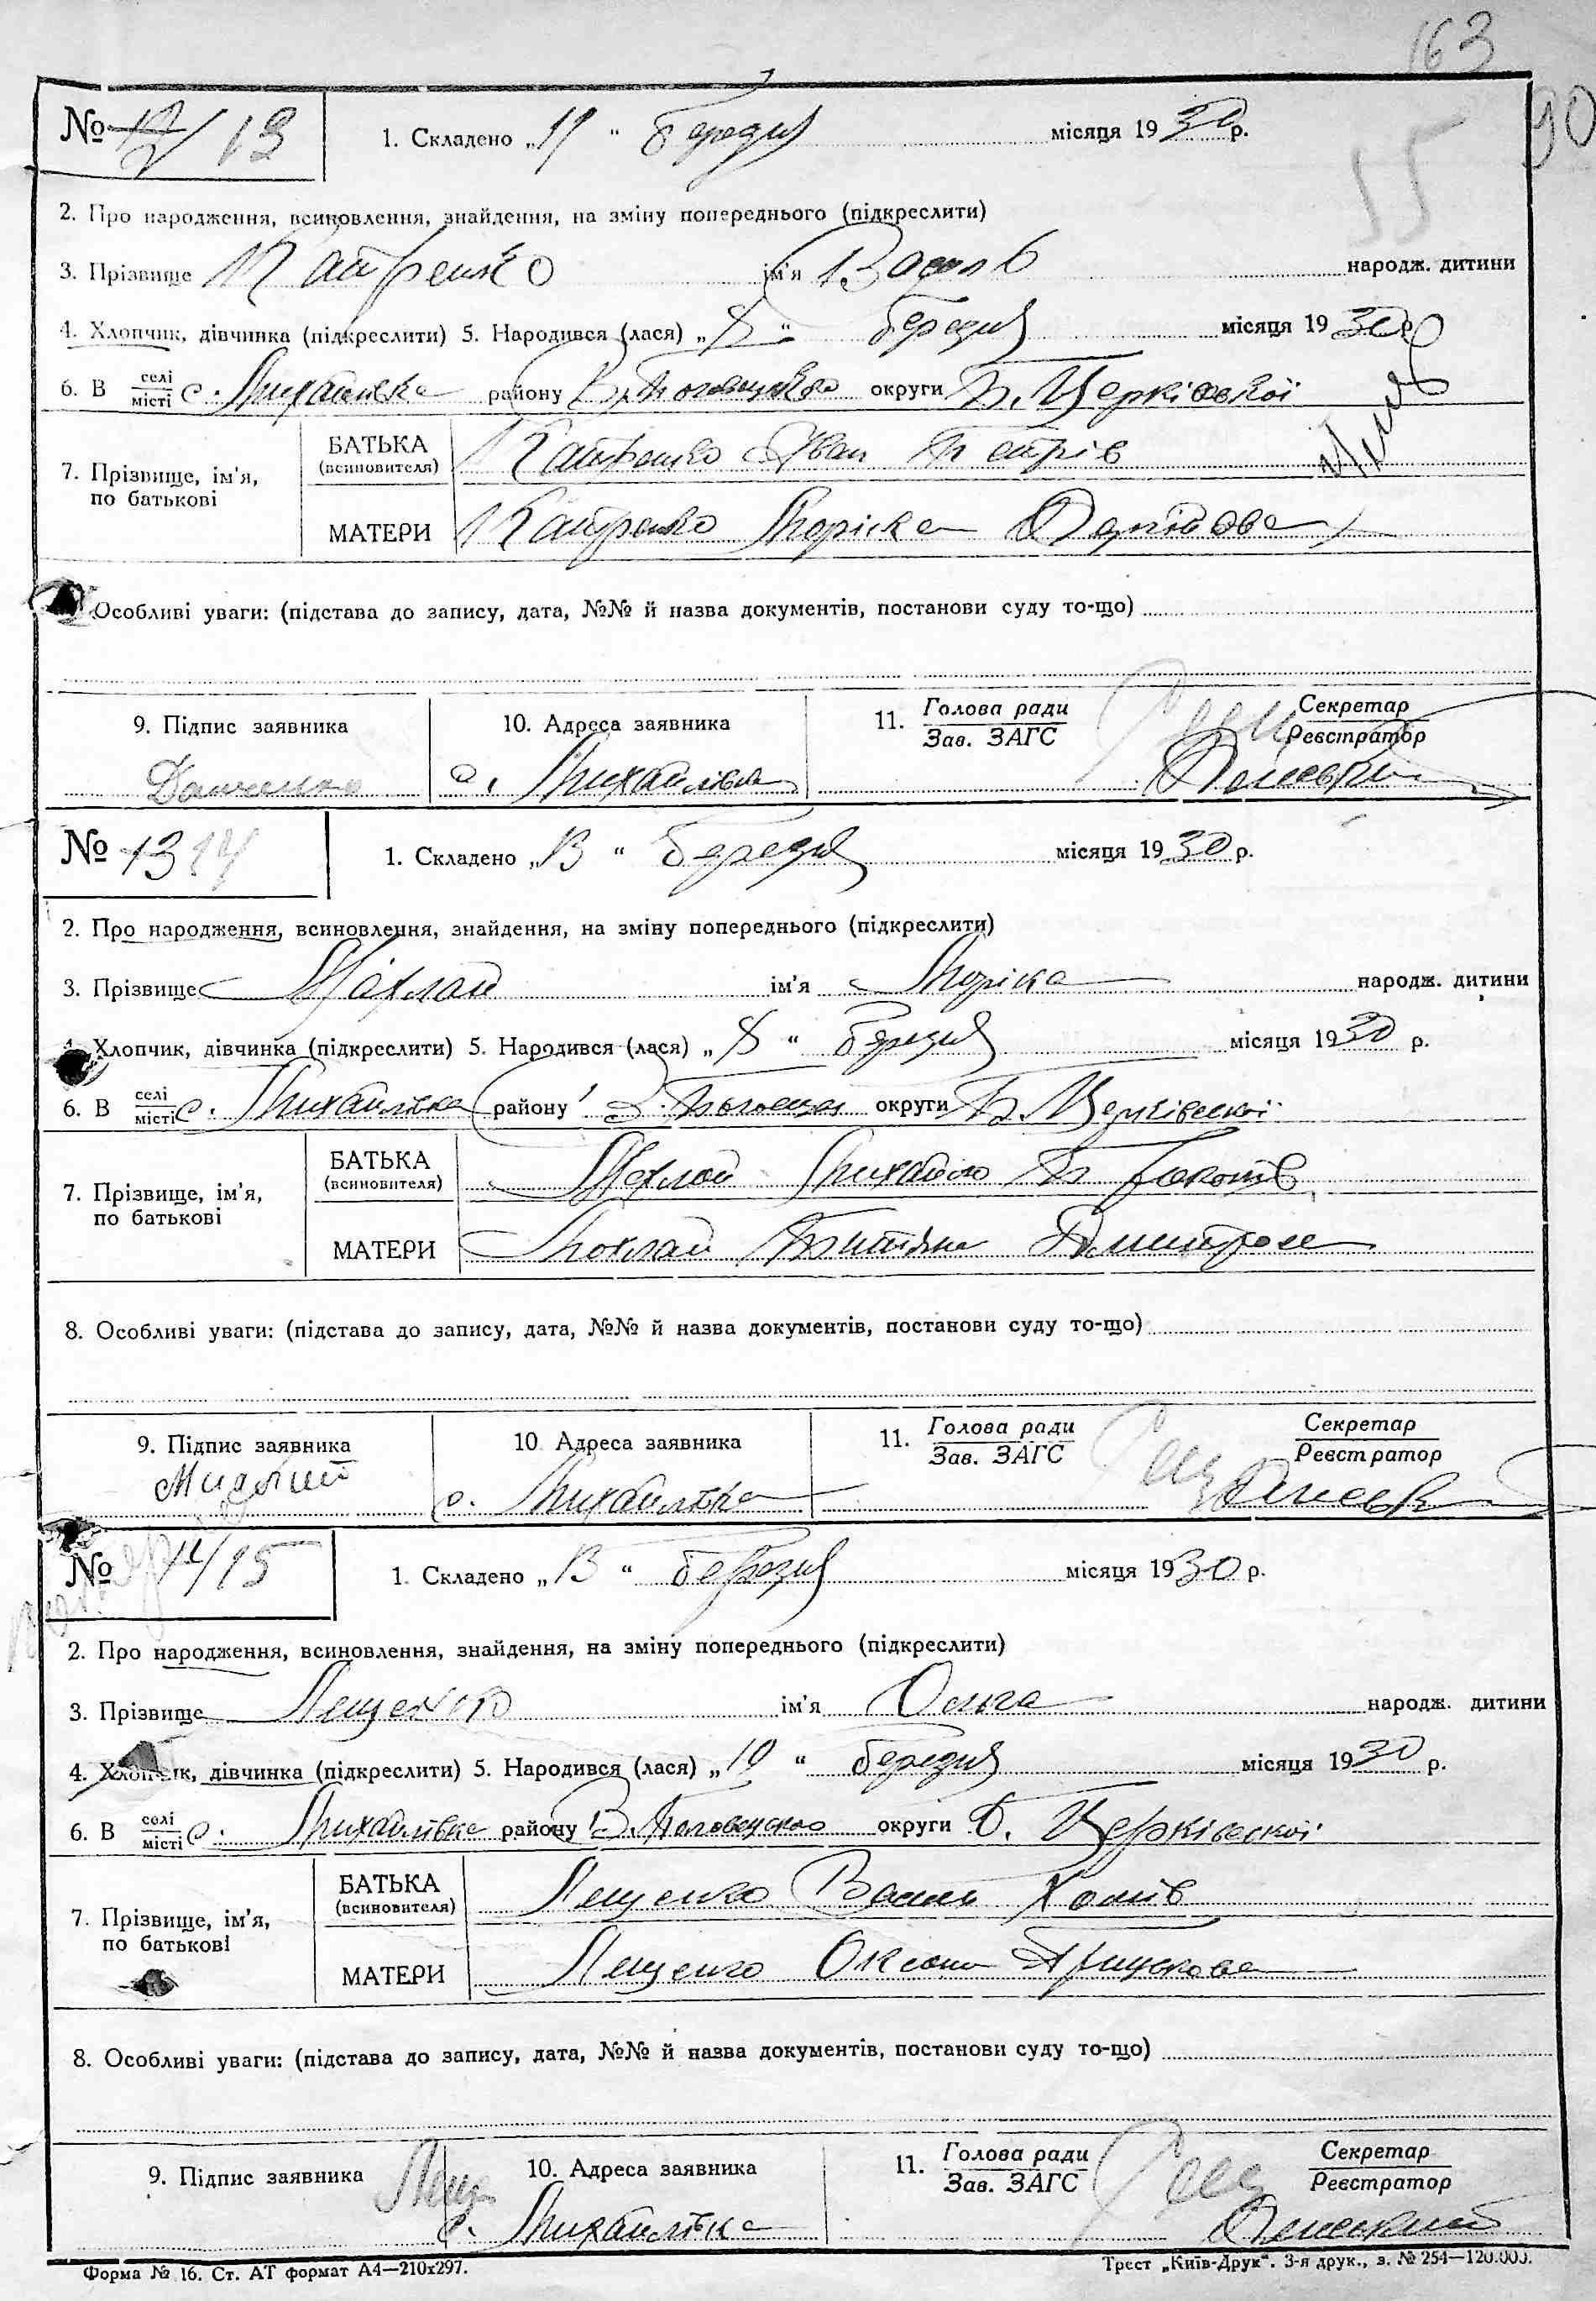 163
90
55
№ 12/ 13
1. Складено „11" березня місяця 1930 р.
2. Про народження, всиновлення, знайдення, на зміну попереднього (підкреслити)
3. Прізвище ім'я Василь народж. дитини
4. Хлопчик, дівчинка (підкреслити) 5. Народився (лася) „8" березня місяця 1930 р.
6. В селі/місті с. Михайлівка району В. Половецького округи Б. Церківської
7. Прізвище, ім'я, по батькові
БАТЬКА (всиновителя) Іван Петрів
МАТЕРИ Моріка
Особливі уваги: (підстава до запису, дата, №№ й назва документів, постанови суду то-що)
9. Підпис заявника 10. Адреса заявника 11. Голова ради / Зав. ЗАГС Секретар / Реєстратор
с. Михайлівка
№ 13 14
1. Складено „13" березня місяця 1930 р.
2. Про народження, всиновлення, знайдення, на зміну попереднього (підкреслити)
3. Прізвище Махлай ім'я Моріка народж. дитини
4. Хлопчик, дівчинка (підкреслити) 5. Народився (лася) „8" березня місяця 1930 р.
6. В селі/місті с. Михайлівка району В. округи Б. Церківської
7. Прізвище, ім'я, по батькові
БАТЬКА (всиновителя) Махлай Михайло
МАТЕРИ Махлай Титяна
8. Особливі уваги: (підстава до запису, дата, №№ й назва документів, постанови суду то-що)
9. Підпис заявника 10. Адреса заявника 11. Голова ради / Зав. ЗАГС Секретар / Реєстратор
с. Михайлівка
№ 14/15
1. Складено „13" березня місяця 1930 р.
2. Про народження, всиновлення, знайдення, на зміну попереднього (підкреслити)
3. Прізвище Лещенко ім'я Ольга народж. дитини
4. Хлопчик, дівчинка (підкреслити) 5. Народився (лася) „10" березня місяця 1930 р.
6. В селі/місті с. Михайлівка району В. Половецького округи Б. Церківської
7. Прізвище, ім'я, по батькові
БАТЬКА (всиновителя) Лещенко Василь Хомів
МАТЕРИ Лещенко Оксана
8. Особливі уваги: (підстава до запису, дата, №№ й назва документів, постанови суду то-що)
9. Підпис заявника 10. Адреса заявника 11. Голова ради / Зав. ЗАГС Секретар / Реєстратор
Лещ с. Михайлівка
Форма № 16. Ст. АТ формат А4—210х297. Трест „Київ-Друк". 3-я друк., з. № 254—120.000.